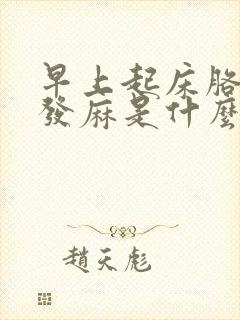 早上起床胳
發麻是什麼
趙天彪